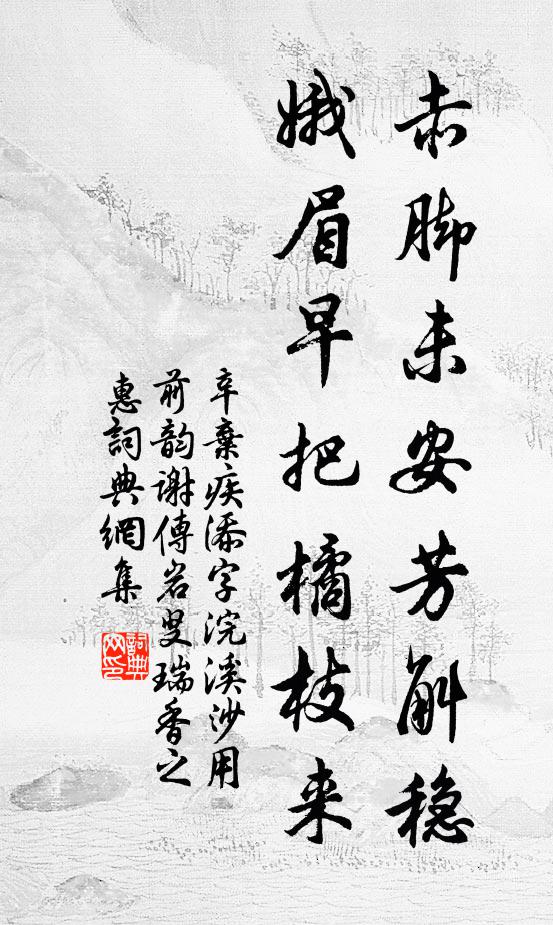 赤脚未安芳斛稳
娥眉早把橘枝来
辛棄疾添字浣溪沙用
前韵謝傅岩叟瑞香之
惠詞典網集
詞典網印